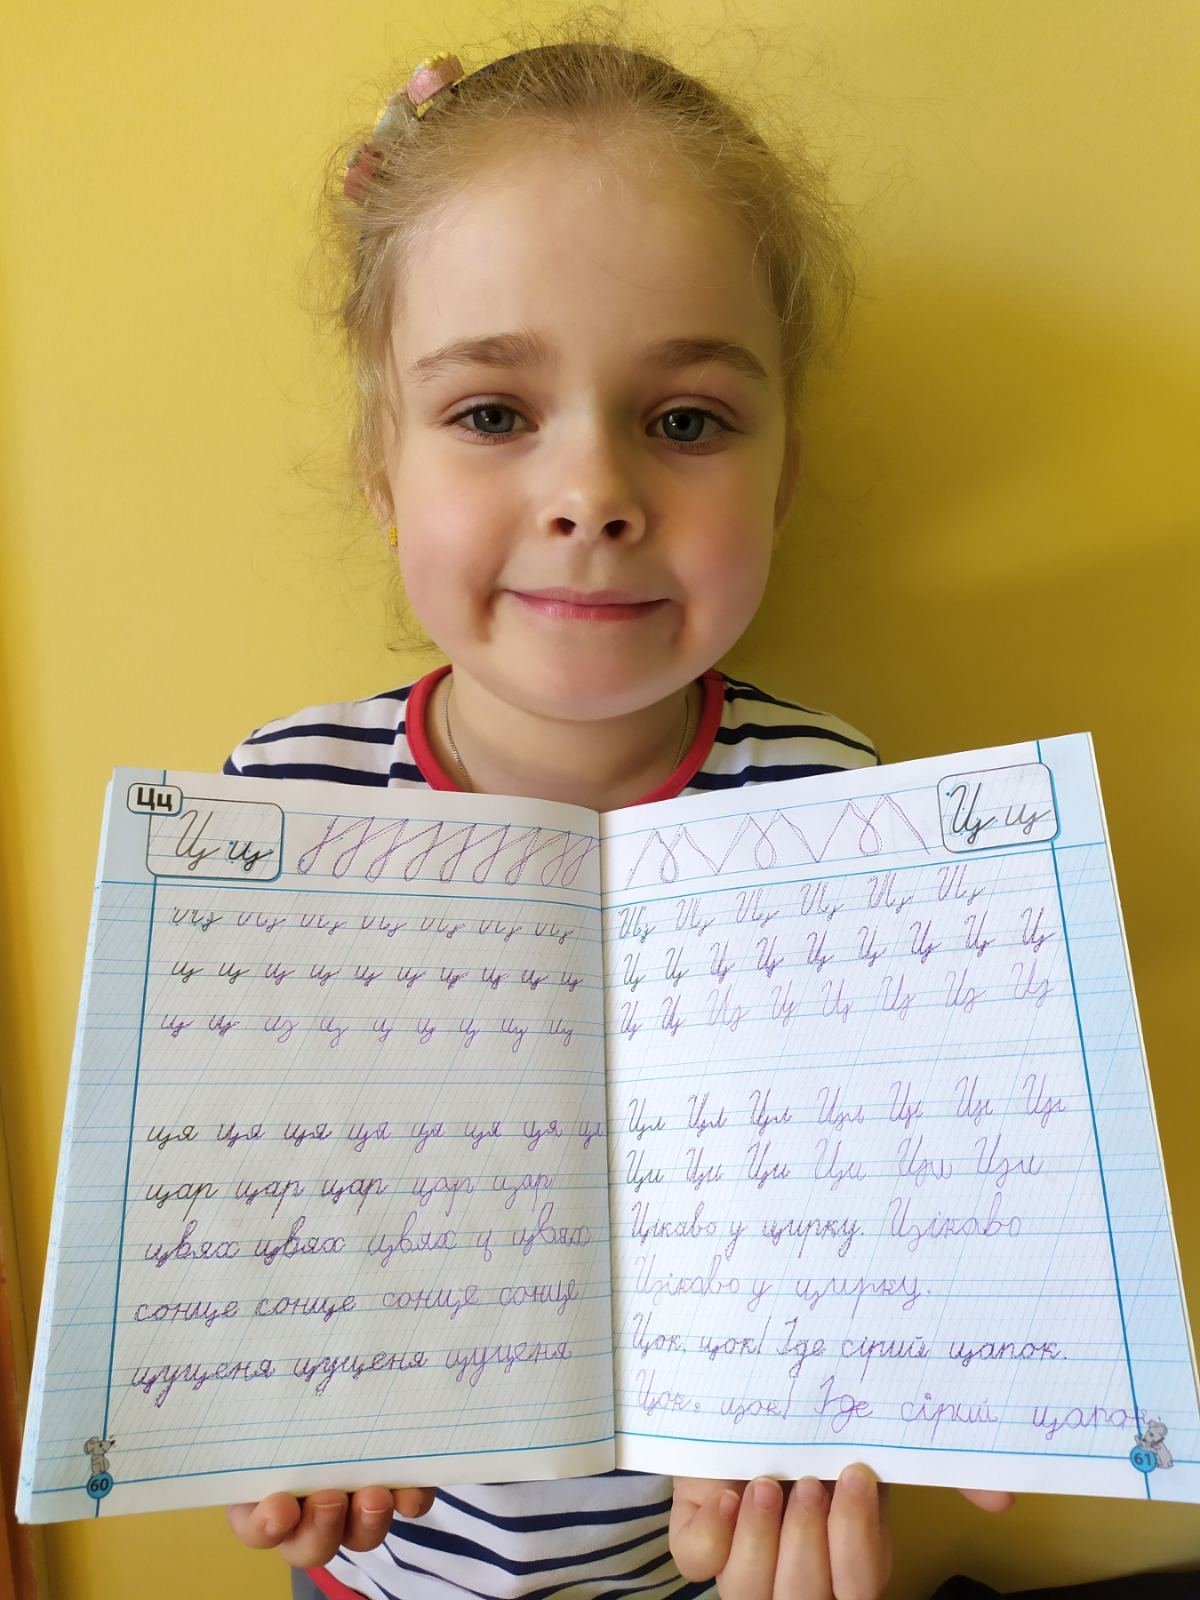 Цц
Ц ц
ц ц ц ц ц ц ц
ц ц ц ц ц ц ц ц ц ц
ц ц ц ц ц ц ц ц ц
ця ця ця ця ця ця ця ця
цар цар цар цар цар
цвях цвях цвях ц цвях
сонце сонце сонце сонце
цуценя цуценя цуценя
60
Ц ц
Ц Ц Ц Ц Ц Ц
Ц Ц Ц Ц Ц Ц Ц Ц Ц
Ц Ц Ц Ц Ц Ц Ц Ц
Ці Ці Ці
Ци Ци Ци Ци Ци Ци
Цікаво у цирку. Цікаво
Цікаво у цирку.
Цок, цок! Іде сірий цапок.
Цок, цок! Іде сірий цапок.
61